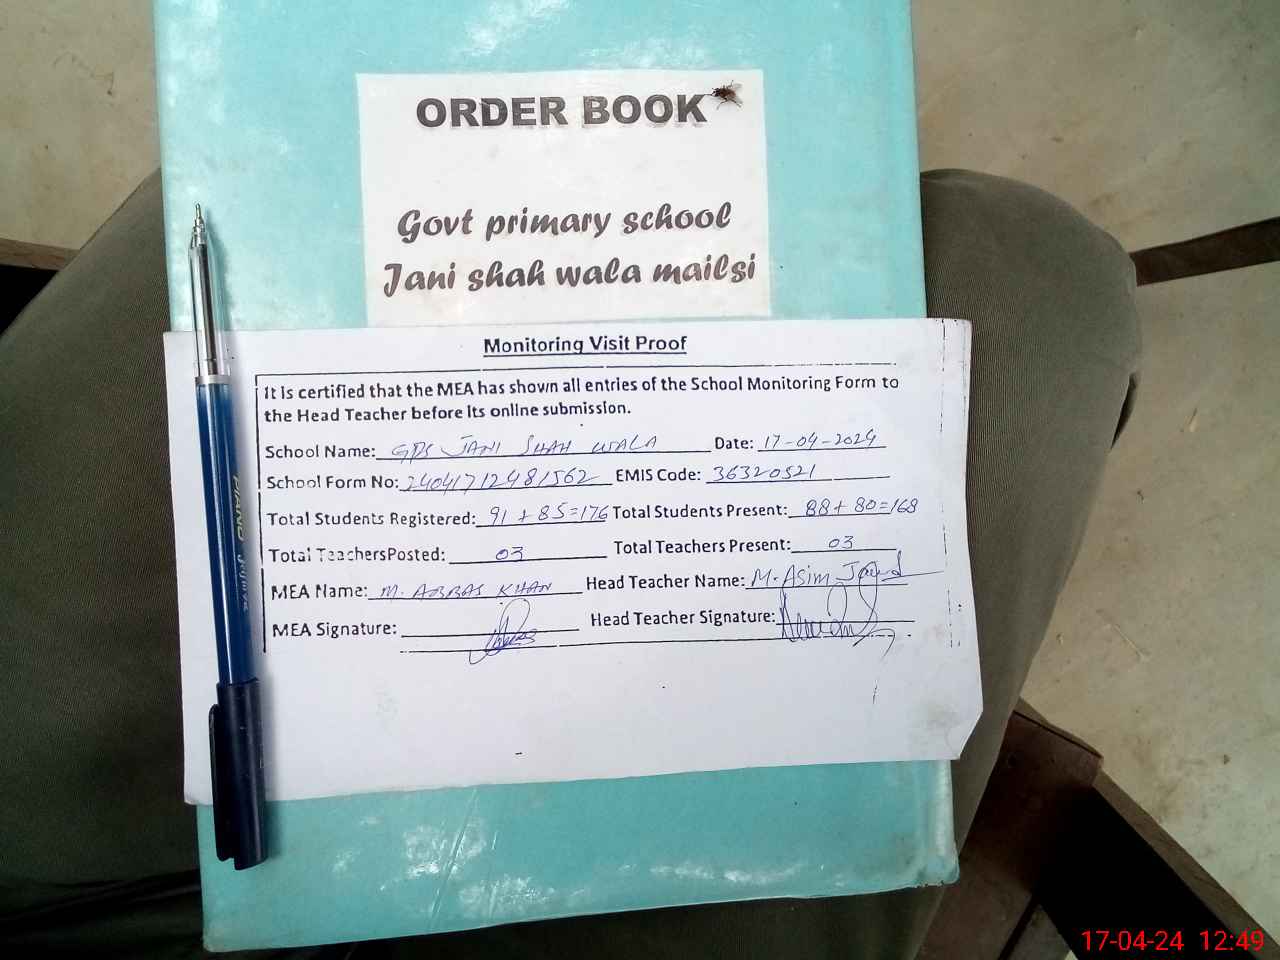 ORDER BOOK
Govt primary school
Jani shah wala mailsi
Monitoring Visit Proof
It is certified that the MEA has shown all entries of the School Monitoring Form to
the Head Teacher before its online submission.
School Name: GPS JANI SHAH WALA Date: 17-04-2024
School Form No: 24041712481562 EMIS Code: 36320521
Total Students Registered: 91 + 85=176 Total Students Present: 88+ 80=168
Total TeachersPosted: 03 Total Teachers Present: 03
MEA Name: M. ABBAS KHAN Head Teacher Name: M. Asim Javed
MEA Signature: Head Teacher Signature:
PIANO
17-04-24 12:49